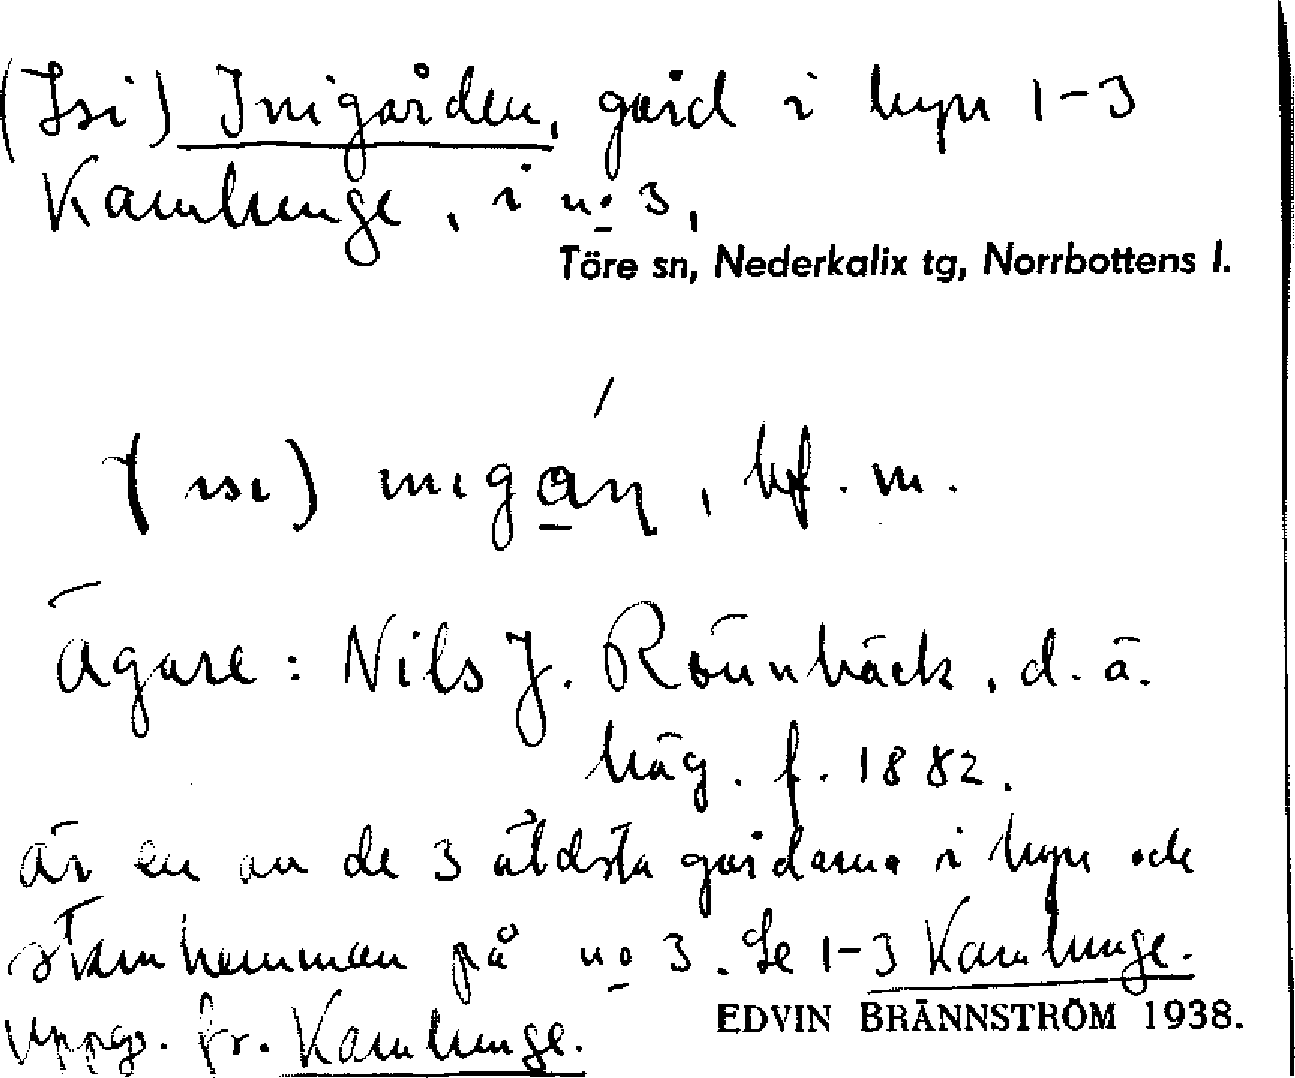 (Isi) Inigården, gård i byn 1-3
Kamlunge, i no 3,
Töre sn, Nederkalix tg, Norrbottens l.
(ɪsɪ) ɪnɪgan, bf. m.
Ägare: Nils J. Rönnbäck, d. ä.
bäg. f. 1882.
är en av de 3 äldsta gårdarna i byn och
stamhemman på no 3. Se 1-3 Kamlunge.
Uppg. fr. Kamlunge.
EDVIN BRÄNNSTRÖM 1938.